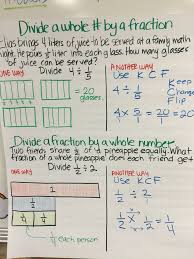 Divide a whole # by a fraction
Elias brings 4 liters of juice to be served at a family math
night. He pours 1/5 liter into each glass. How many glasses
of juice can be served?
Divide 4 ÷ 1/5
ONE WAY
= 20
glasses
ANOTHER WAY
Use K C F
Keep
Change
Flip
4 ÷ 1/5
4 x 5/1 = 20/1 = 20
Divide a fraction by a whole number
Two friends share 1/2 of a pineapple equally. What
fraction of a whole pineapple does each friend get?
Divide 1/2 ÷ 2
ONE WAY
1
1/2
1/4 1/4
1/4 each person
ANOTHER WAY
Use K C F
1/2 ÷ 2
1/2 x 1/2 = 1/4